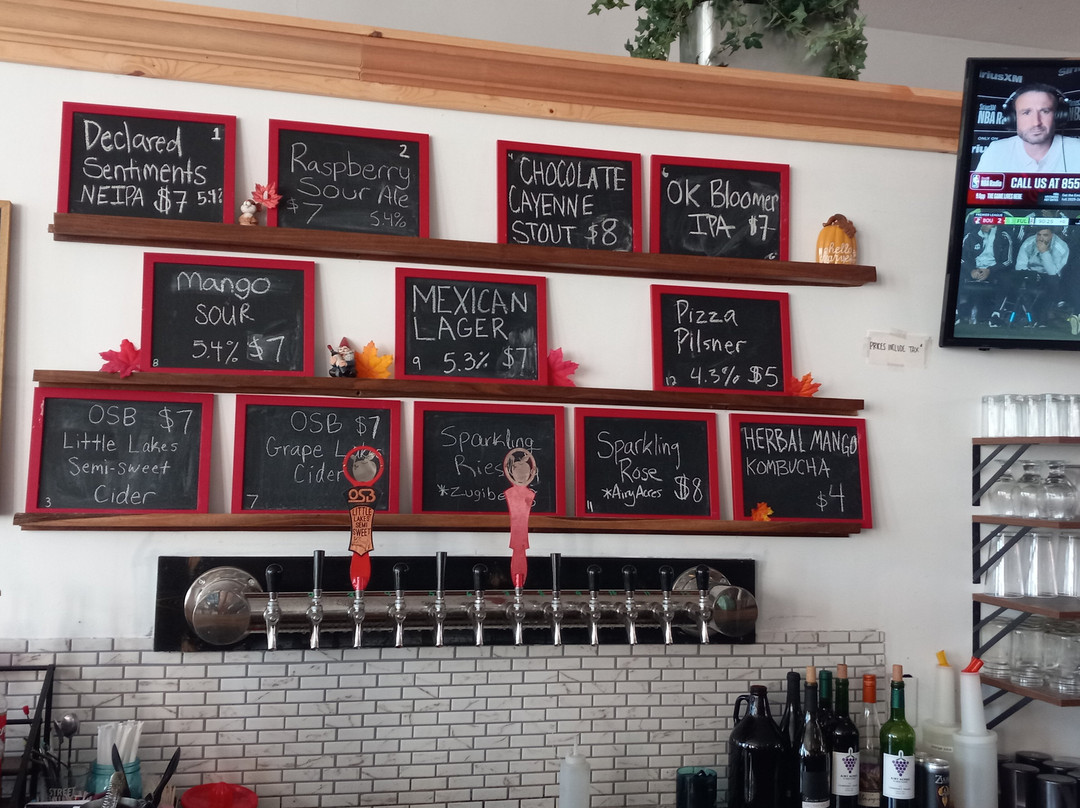 Declared 1
Sentiments
NEIPA $7 5.4%
Raspberry 2
Sour Ale
$7 5.4%
CHOCOLATE
CAYENNE
STOUT $8
6
OK Bloomer
IPA $7
Mango
SOUR
5.4% $7
8
MEXICAN
LAGER
9 5.3% $7
Pizza
Pilsner
12 4.3% $5
PRICES INCLUDE TAX
OSB $7
Little Lakes
Semi-sweet
3 Cider
OSB $7
Grape Lakes
Cider
7
Sparkling
*Zugibe
Sparkling
Rose
*Airy Acres $8
11
HERBAL MANGO
KOMBUCHA
$4
hello
OSB
LITTLE
LAKES SEMI
SWEET
SiriusXM
NBA Radio
CALL US AT 855
PREMIER LEAGUE
BOU 2